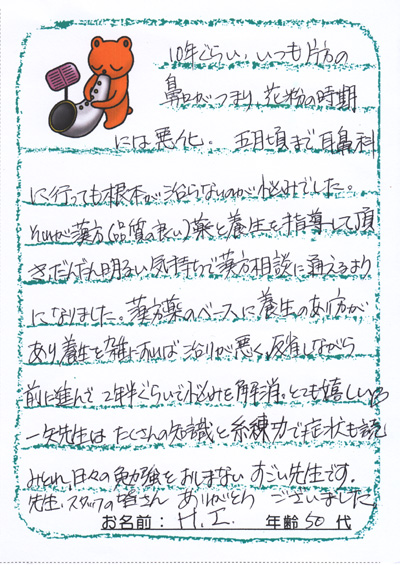 10年ぐらい、いつも片方の
鼻がつまり、花粉の時期
には悪化。五月頃まで耳鼻科
に行っても根本が治らないのが悩みでした。
それが漢方(品質の良い)薬と養生を指導して頂
きだんだん明るい気持ちで漢方相談に通えるよう
になりました。漢方薬のベースに養生のあり方が
あり、養生を雑にすれば治りが悪く、反省しながら
前に進んで2年半ぐらいで悩みを解消。とても嬉しい
一矢先生は たくさんの知識と 練力で症状も読
みとれ、日々の勉強をおしまない すごい先生です。
先生、スタッフの皆さん ありがとう ございました
お名前:H.I. 年齢 50 代